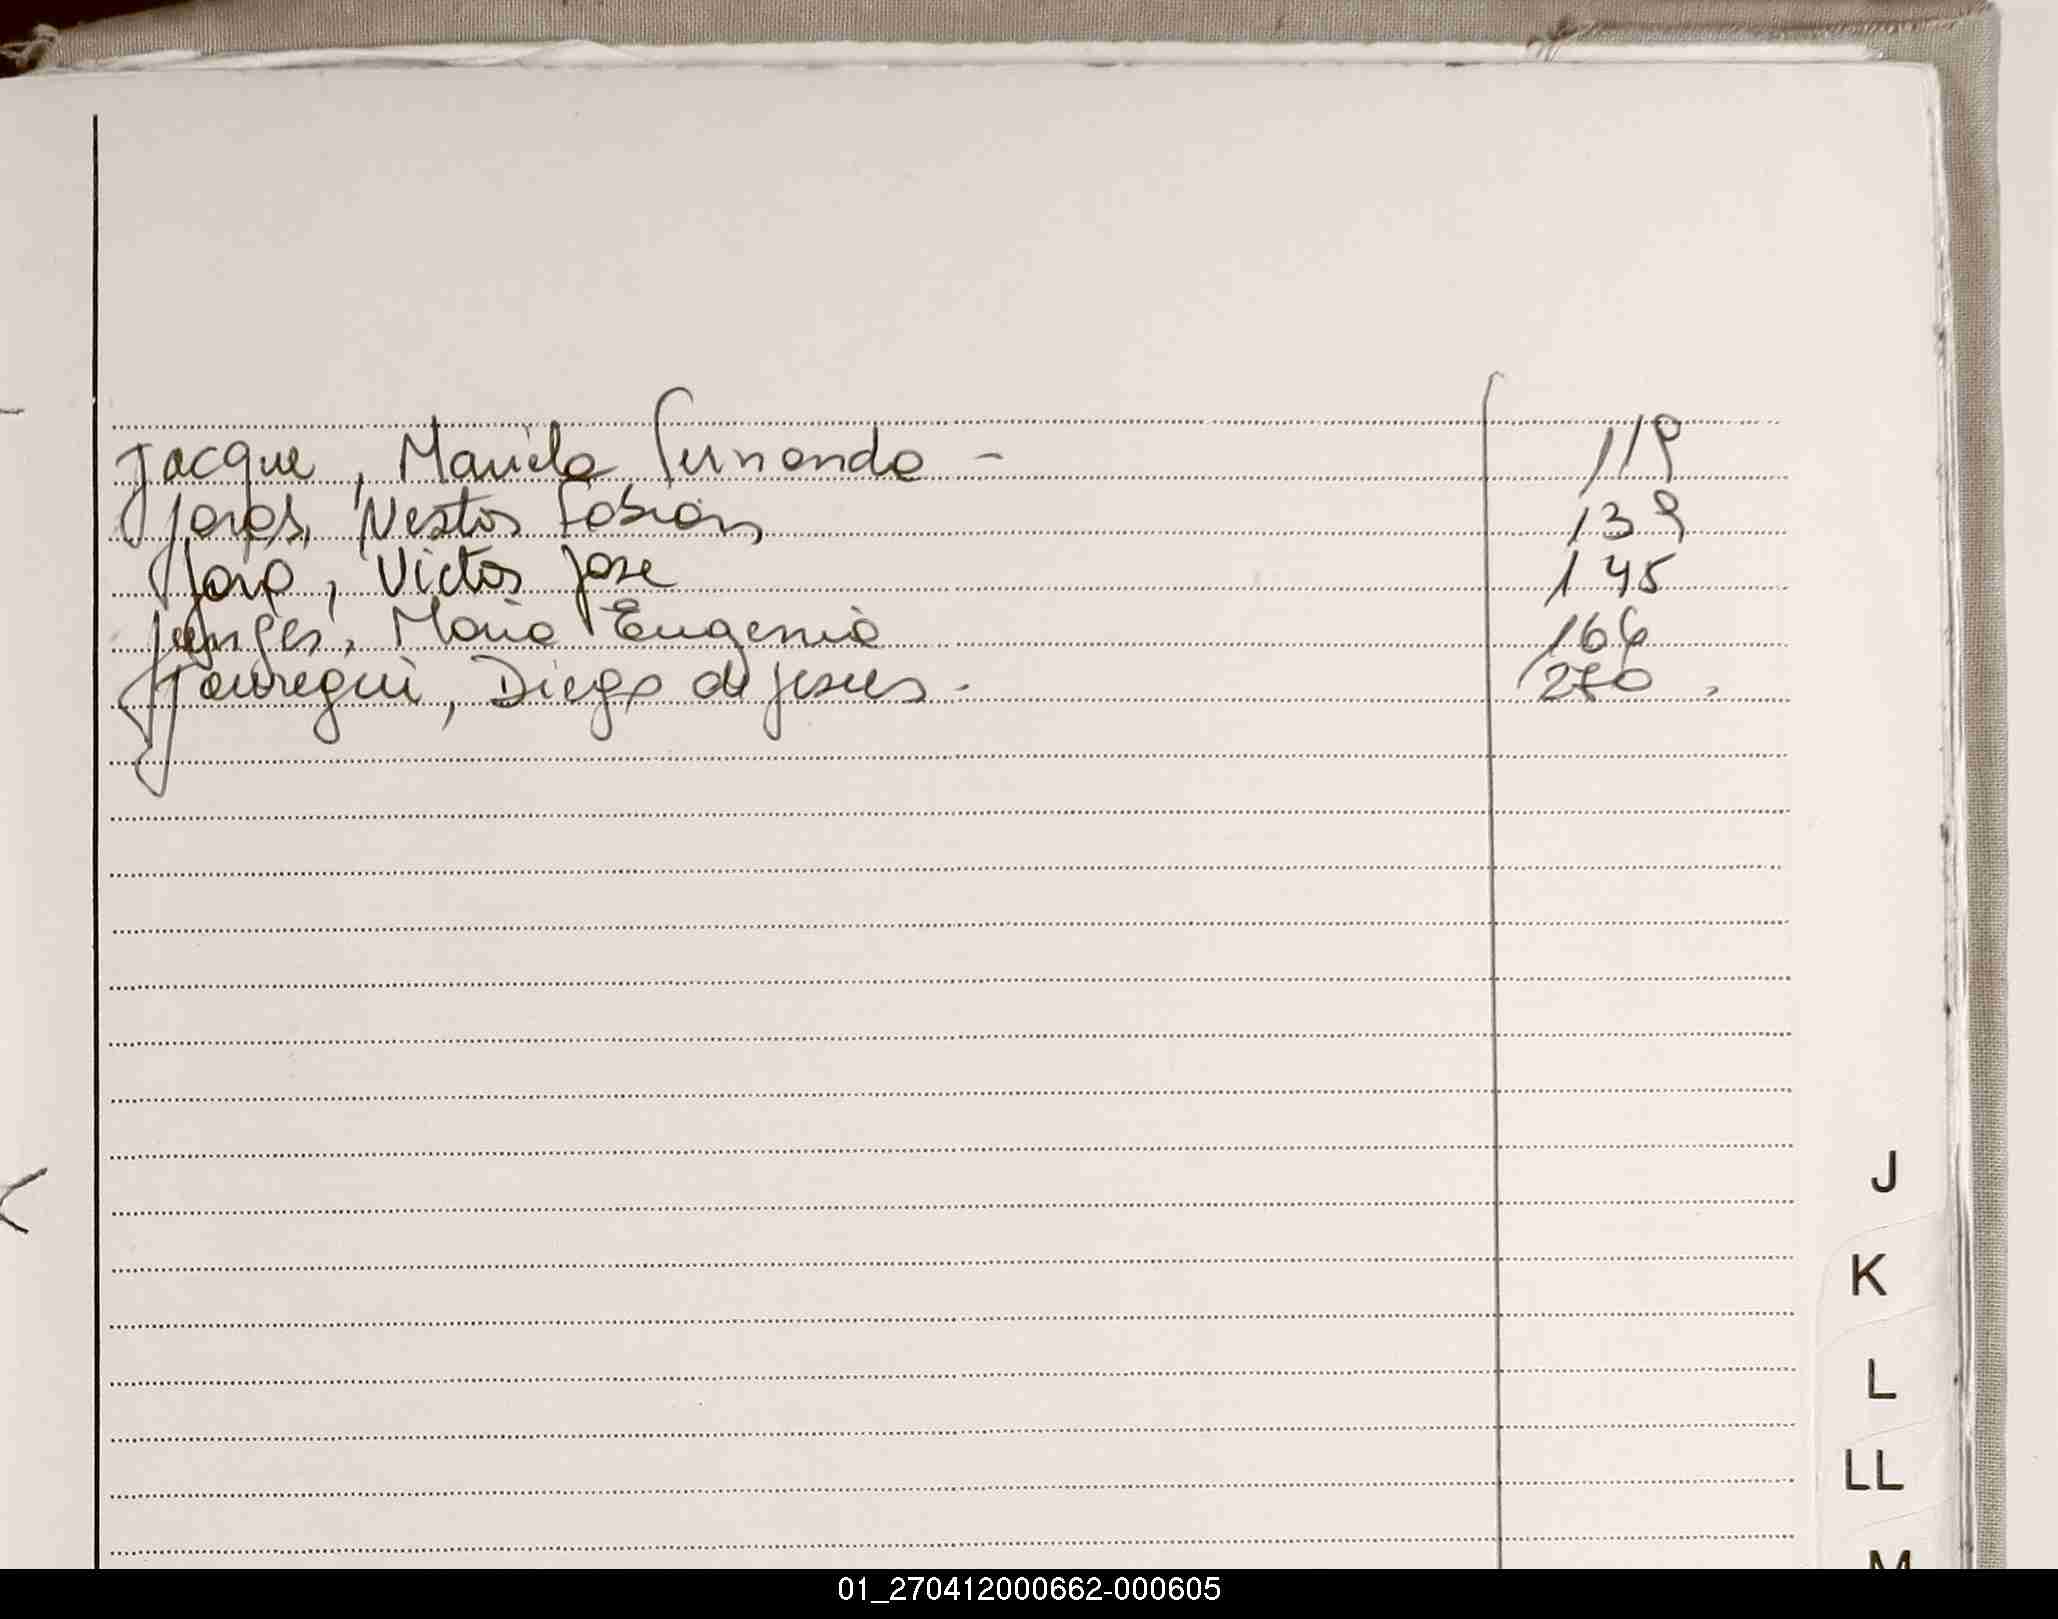 Jacque, Mariela Fernanda - 119
Jaras, Nestor Fabian, 139
Jara, Victor Jose 145
Junges, Maria Eugenia 166
Jauregui, Diego de Jesus. - 270.
J
K
L
LL
M
01_270412000662-000605